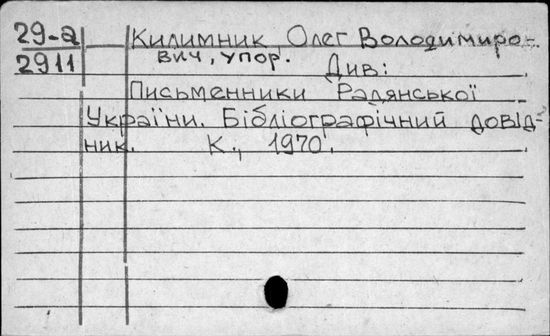 29-а Килимник, Олег Володимиро-
2911 вич, упор.
Див:
Письменники Радянської
України. Бібліографічний довід-
ник. К., 1970.